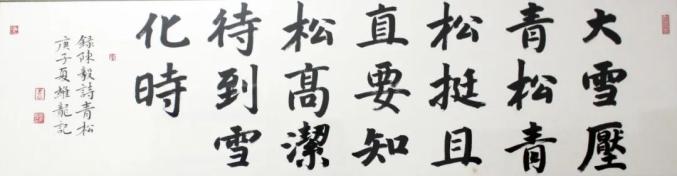 大雪壓
青松青
松挺且
直要知
松高潔
待到雪
化時
錄陳毅詩青松
庚子夏維龍記